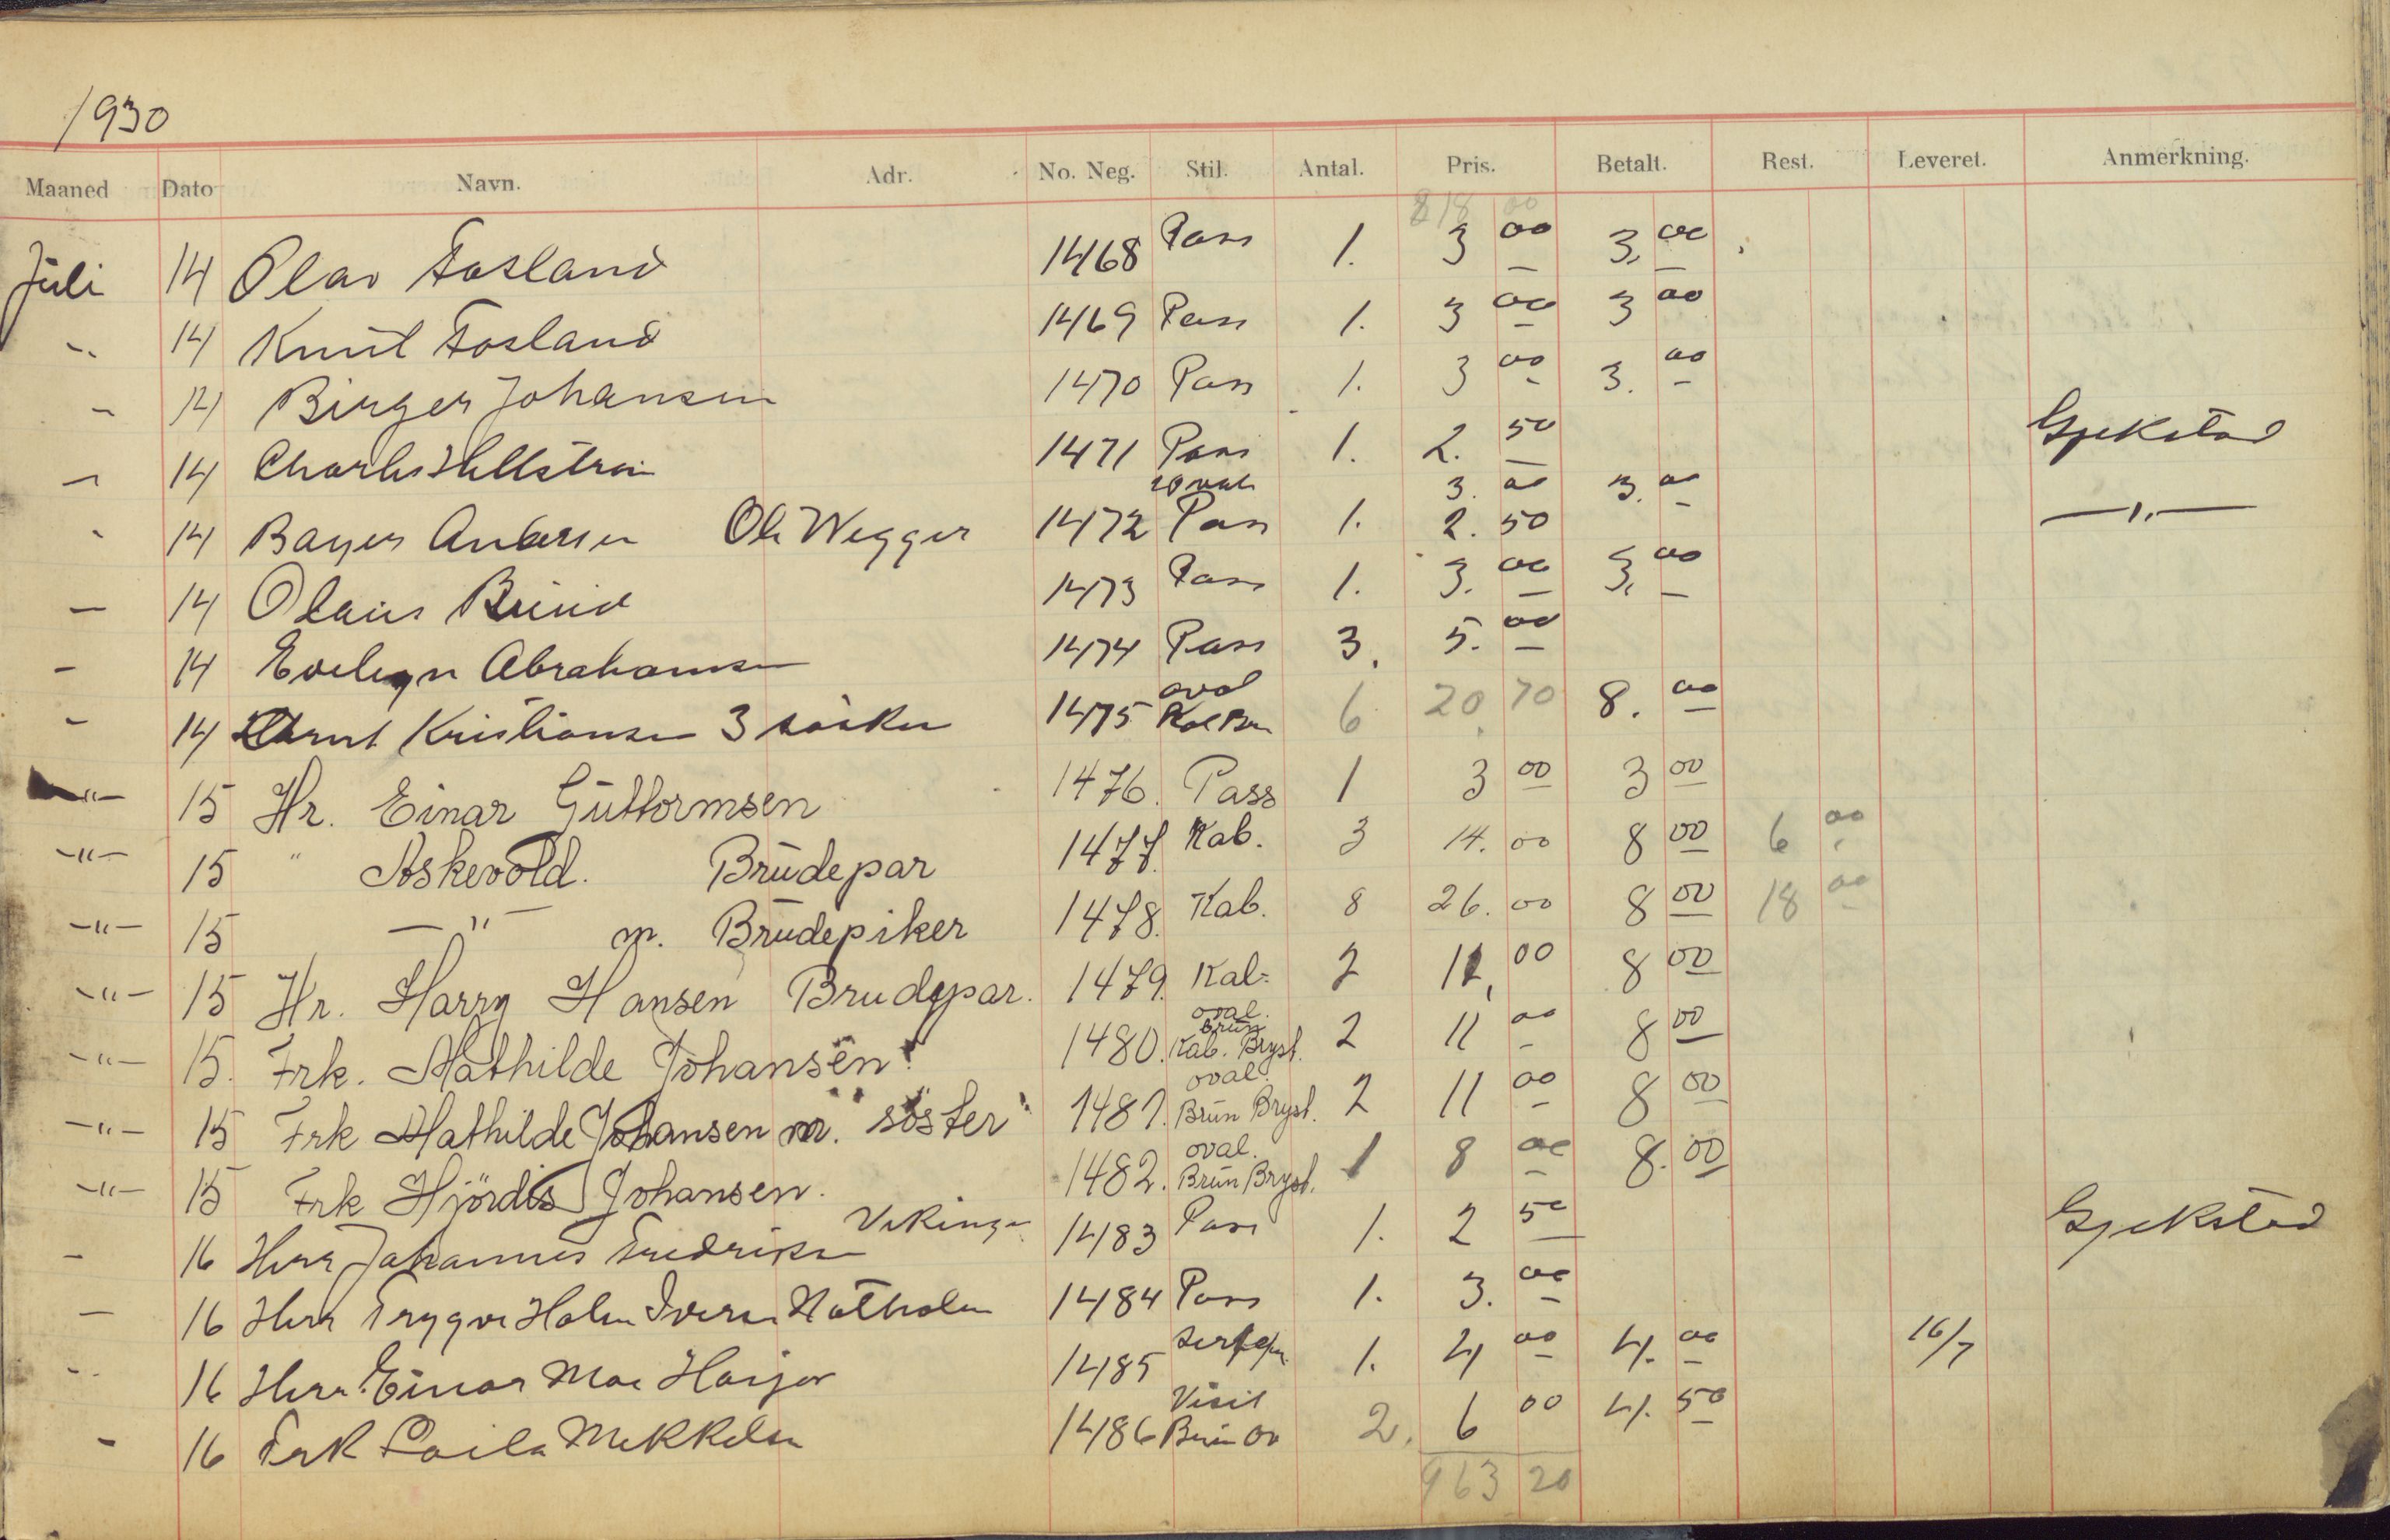 1930
Maaned Dato Navn. Adr. No. Neg. Stil. Antal. Pris. Betalt. Rest. Leveret. Anmerkning.
818 00
Juli 14 Olav Fosland 1468 Pass 1. 3 00 3, 00
-"- 14 Knut Fosland 1469 Pass 1. 3 00 3 00
- 14 Birger Johansen 1470 Pass 1. 3 00 3. 00
- 14 Charles Hellstrøm 1471 Pass 1. 2. 50 Gjekstad
3. 00 3. 00
- 14 Andersen Ole Wegger 1472 Pass 1. 2. 50 -"-
- 14 Olaus 1473 Pass 1. 3. 00 3, 00
- 14 Evelyn Abrahamsen 1474 Pass 3. 5. 00
oval
- 14 Kristiansen 3 søsken 1475 6 20 70 8. 00
-"- 15 Hr. Einar Guttormsen 1476. Pass 1 3 00 3 00
-"- 15 " Askevold. Brüdepar 1477. Kab. 3 14. 00 8 00 6 00
-"- 15 -"- m. Brüdepiker 1478. Kab. 8 26. 00 8 00 18 00
-"- 15 Hr. Harry Hansen Brudepar. 1479. Kab. 2 11, 00 8 00
oval.
brün
-"- 15. Frk. Mathilde Johansen. 1480. Kab. Bryst. 2 11 00 8 00
oval.
-"- 15 Frk Mathilde Johansen m. söster 1481. Brün Bryst. 2 11 00 8 00
oval.
-"- 15 Frk Hjördis Johansen. 1482. Brün Bryst. 1 8 00 8. 00
- 16 Herr Johannes Fredriksen 1483 Pass 1. 2 50 Gjekstad
- 16 Herr Trygve Holm Iversen Nøtterholm 1484 Pass 1. 3. 00
-"- 16 Herr Einar Moe 1485 1. 4 00 4. 00 16/7
Visit
- 16 Frk Laila Mikkelsen 1486 Brün Ov 2. 6 00 4. 50
963 20